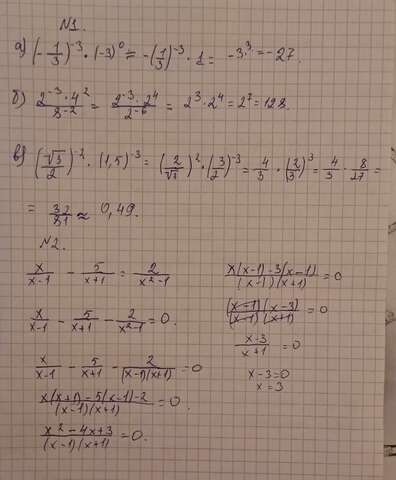 N1.
а) (-1/3)^-3 · (-3)^0 = -(1/3)^-3 · 1 = -3^3 = -27.
б) (2^-3 · 4^2)/(8^-2) = (2^-3 · 2^4)/(2^-6) = 2^3 · 2^4 = 2^7 = 128.
в) (√3/2)^-2 · (1,5)^-3 = (2/√3)^2 · (3/2)^-3 = 4/3 · (2/3)^3 = 4/3 · 8/27 =
= 32/81 ≈ 0,49.
N2.
x/(x-1) - 5/(x+1) = 2/(x^2-1)
x/(x-1) - 5/(x+1) - 2/(x^2-1) = 0.
x/(x-1) - 5/(x+1) - 2/((x-1)(x+1)) = 0
(x(x+1) - 5(x-1) - 2)/((x-1)(x+1)) = 0.
(x^2 - 4x + 3)/((x-1)(x+1)) = 0.
(x(x-1) - 3(x-1))/((x-1)(x+1)) = 0
((x-1)(x-3))/((x-1)(x+1)) = 0
(x-3)/(x+1) = 0
x-3=0
x=3